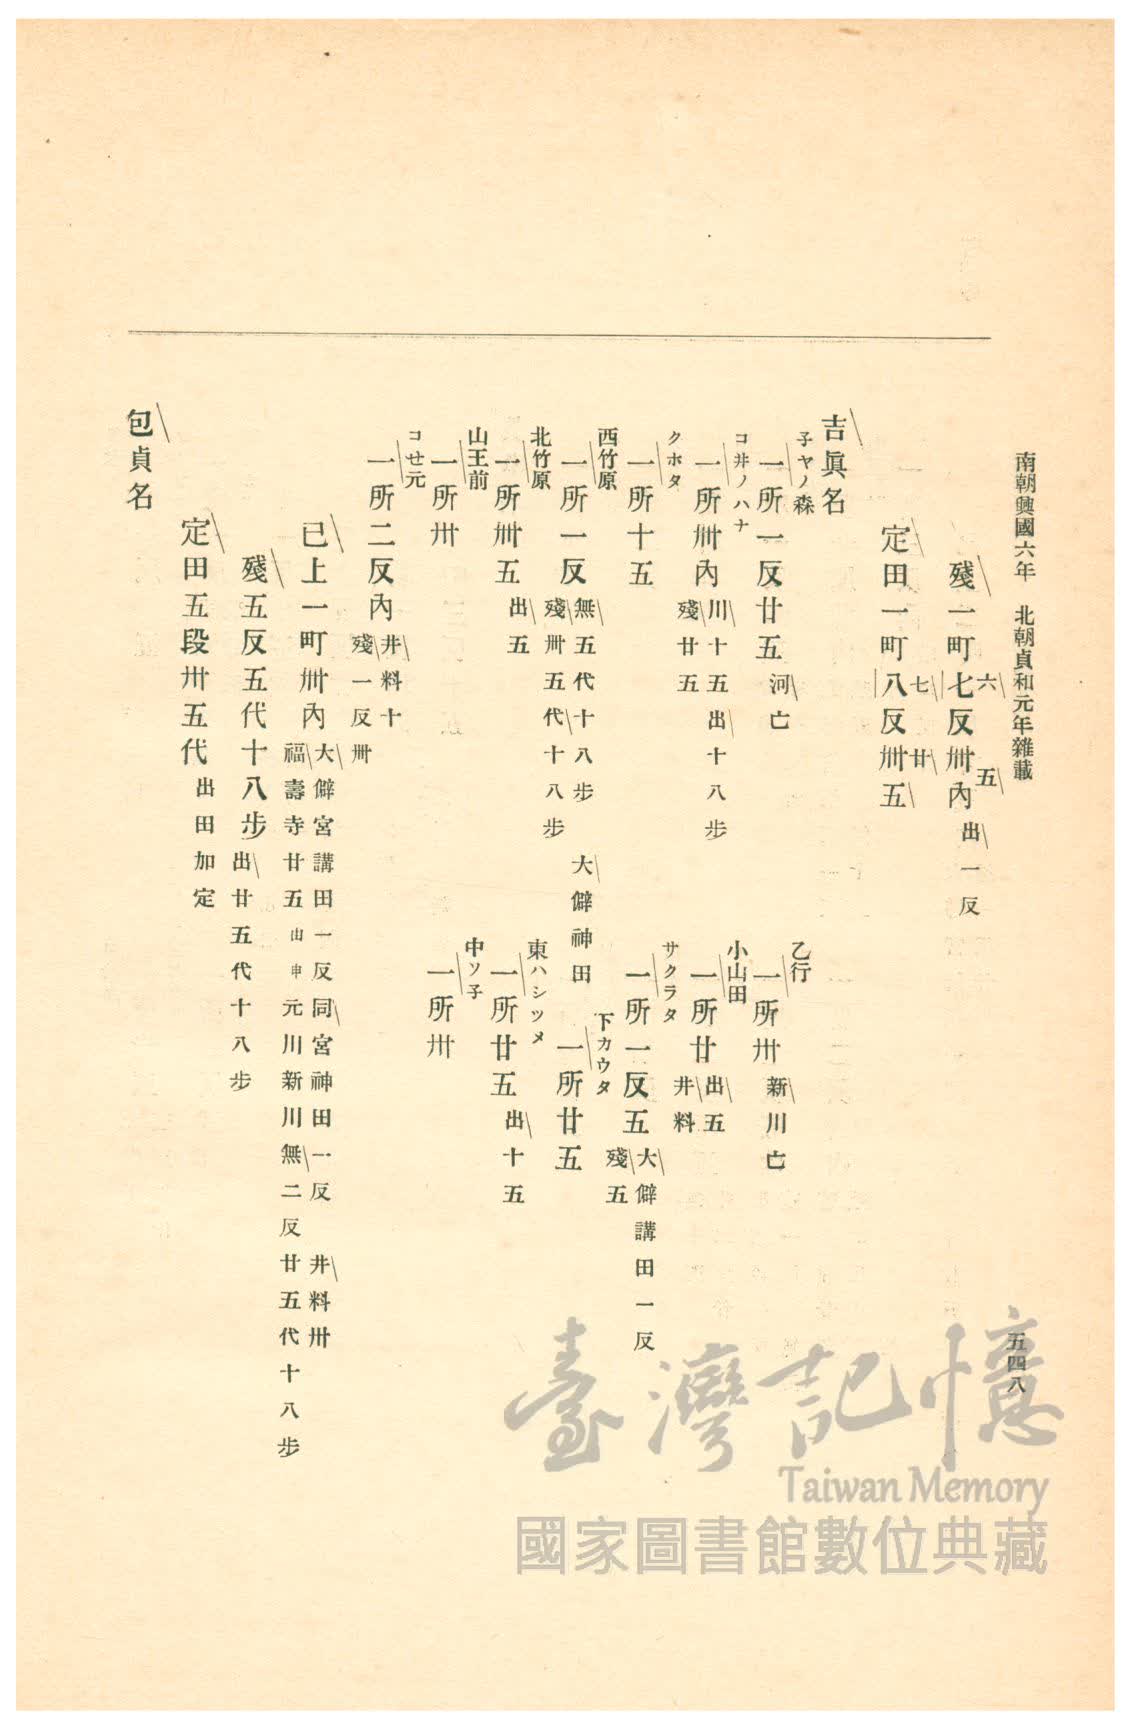 南朝興國六年　北朝貞和元年雜載
五四八
殘一町七反卅內　出一反
六
五
定田一町八反卌五
七
廿
吉眞名
子ヤノ森
一所一反廿五　河亡
乙行
一所卅　新川亡
コ井ノハナ
一所卌內　川十五出十八步
殘廿五
小山田
一所廿　出五
井料
クホタ
一所十五
サクラタ
一所一反五　大僻講田一反
殘五
西竹原
一所一反　無五代十八步　大僻神田
殘卌五代十八步
下カウタ
一所廿五
北竹原
一所卌五　出五
東ハシツメ
一所廿五　出十五
山王前
一所卅
中ソ子
一所卅
コせ元
一所二反內　井料十
殘一反卌
已上一町卌內　大僻宮講田一反同宮神田一反　井料卅
福壽寺廿五由申元川新川無二反廿五代十八步
殘五反五代十八步　出廿五代十八步
定田五段卅五代　出田加定
包貞名
臺灣記憶
Taiwan Memory
國家圖書館數位典藏